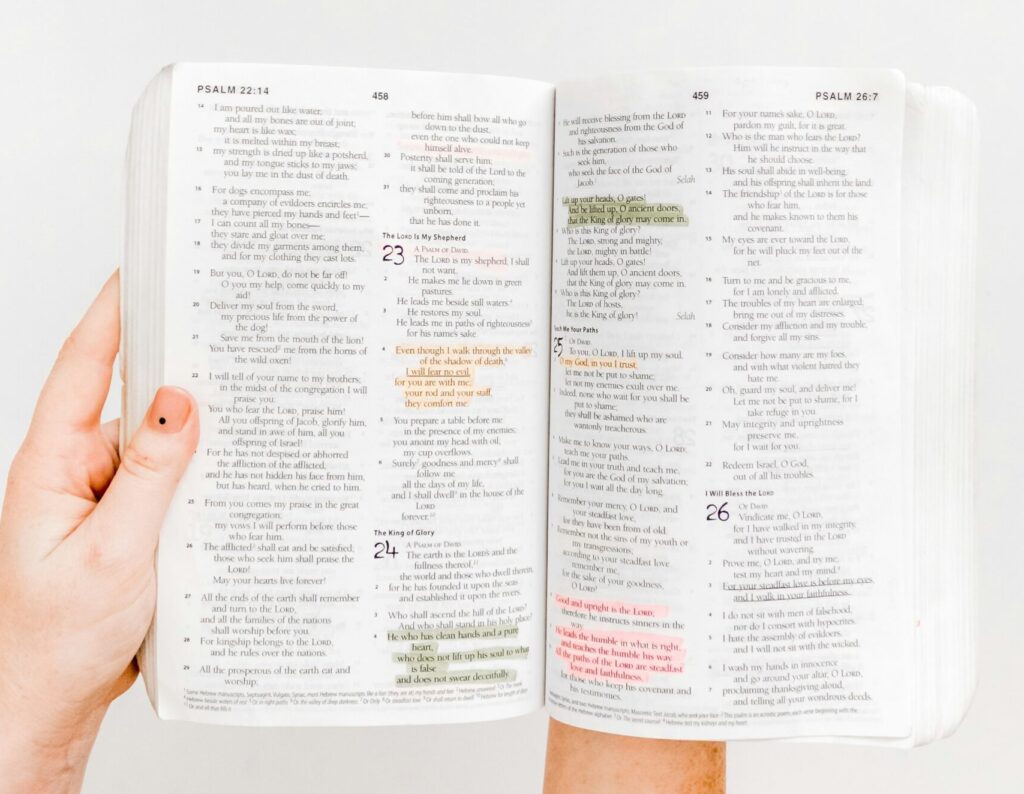 PSALM 22:14
458
14 I am poured out like water,
and all my bones are out of joint;
my heart is like wax;
it is melted within my breast;
15 my strength is dried up like a potsherd,
and my tongue sticks to my jaws;
you lay me in the dust of death.
16 For dogs encompass me;
a company of evildoers encircles me;
they have pierced my hands and feet—
17 I can count all my bones—
they stare and gloat over me;
18 they divide my garments among them,
and for my clothing they cast lots.
19 But you, O LORD, do not be far off!
O you my help, come quickly to my
aid!
20 Deliver my soul from the sword,
my precious life from the power of
the dog!
21 Save me from the mouth of the lion!
You have rescued me from the horns of
the wild oxen!
22 I will tell of your name to my brothers;
in the midst of the congregation I will
praise you:
You who fear the LORD, praise him!
All you offspring of Jacob, glorify him,
and stand in awe of him, all you
offspring of Israel!
For he has not despised or abhorred
the affliction of the afflicted,
and he has not hidden his face from him,
but has heard, when he cried to him.
25 From you comes my praise in the great
congregation;
my vows I will perform before those
who fear him.
26 The afflicted shall eat and be satisfied;
those who seek him shall praise the
LORD!
May your hearts live forever!
27 All the ends of the earth shall remember
and turn to the LORD,
and all the families of the nations
shall worship before you.
28 For kingship belongs to the LORD,
and he rules over the nations.
29 All the prosperous of the earth eat and
worship;
before him shall bow all who go
down to the dust,
even the one who could not keep
himself alive.
30 Posterity shall serve him;
it shall be told of the Lord to the
coming generation;
31 they shall come and proclaim his
righteousness to a people yet
unborn,
that he has done it.
The LORD Is My Shepherd
23 A PSALM OF DAVID.
The LORD is my shepherd; I shall
not want.
2 He makes me lie down in green
pastures.
He leads me beside still waters.
3 He restores my soul.
He leads me in paths of righteousness
for his name's sake.
4 Even though I walk through the valley
of the shadow of death,
I will fear no evil,
for you are with me;
your rod and your staff,
they comfort me.
5 You prepare a table before me
in the presence of my enemies;
you anoint my head with oil;
my cup overflows.
6 Surely goodness and mercy shall
follow me
all the days of my life,
and I shall dwell in the house of the
LORD
forever.
The King of Glory
24 A PSALM OF DAVID.
The earth is the LORD's and the
fullness thereof,
the world and those who dwell therein,
2 for he has founded it upon the seas
and established it upon the rivers.
3 Who shall ascend the hill of the LORD?
And who shall stand in his holy place?
4 He who has clean hands and a pure
heart,
who does not lift up his soul to what
is false
and does not swear deceitfully.
459
PSALM 26:7
He will receive blessing from the LORD
and righteousness from the God of
his salvation.
Such is the generation of those who
seek him,
who seek the face of the God of
Jacob. Selah
Lift up your heads, O gates!
And be lifted up, O ancient doors,
that the King of glory may come in.
Who is this King of glory?
The LORD, strong and mighty,
the LORD, mighty in battle!
Lift up your heads, O gates!
And lift them up, O ancient doors,
that the King of glory may come in.
Who is this King of glory?
The LORD of hosts,
he is the King of glory! Selah
Teach Me Your Paths
25 OF DAVID.
To you, O LORD, I lift up my soul.
O my God, in you I trust;
let me not be put to shame;
let not my enemies exult over me.
Indeed, none who wait for you shall be
put to shame;
they shall be ashamed who are
wantonly treacherous.
Make me to know your ways, O LORD;
teach me your paths.
Lead me in your truth and teach me,
for you are the God of my salvation;
for you I wait all the day long.
Remember your mercy, O LORD, and
your steadfast love,
for they have been from of old.
Remember not the sins of my youth or
my transgressions;
according to your steadfast love
remember me,
for the sake of your goodness,
O LORD!
Good and upright is the LORD;
therefore he instructs sinners in the
way.
He leads the humble in what is right,
and teaches the humble his way.
All the paths of the LORD are steadfast
love and faithfulness,
for those who keep his covenant and
his testimonies.
11 For your name's sake, O LORD,
pardon my guilt, for it is great.
12 Who is the man who fears the LORD?
Him will he instruct in the way that
he should choose.
13 His soul shall abide in well-being,
and his offspring shall inherit the land.
14 The friendship of the LORD is for those
who fear him,
and he makes known to them his
covenant.
15 My eyes are ever toward the LORD,
for he will pluck my feet out of the
net.
16 Turn to me and be gracious to me,
for I am lonely and afflicted.
17 The troubles of my heart are enlarged;
bring me out of my distresses.
18 Consider my affliction and my trouble,
and forgive all my sins.
19 Consider how many are my foes,
and with what violent hatred they
hate me.
20 Oh, guard my soul, and deliver me!
Let me not be put to shame, for I
take refuge in you.
21 May integrity and uprightness
preserve me,
for I wait for you.
22 Redeem Israel, O God,
out of all his troubles.
I Will Bless the LORD
26 OF DAVID.
Vindicate me, O LORD,
for I have walked in my integrity,
and I have trusted in the LORD
without wavering.
2 Prove me, O LORD, and try me;
test my heart and my mind.
3 For your steadfast love is before my eyes,
and I walk in your faithfulness.
4 I do not sit with men of falsehood,
nor do I consort with hypocrites.
5 I hate the assembly of evildoers,
and I will not sit with the wicked.
6 I wash my hands in innocence
and go around your altar, O LORD,
7 proclaiming thanksgiving aloud,
and telling all your wondrous deeds.